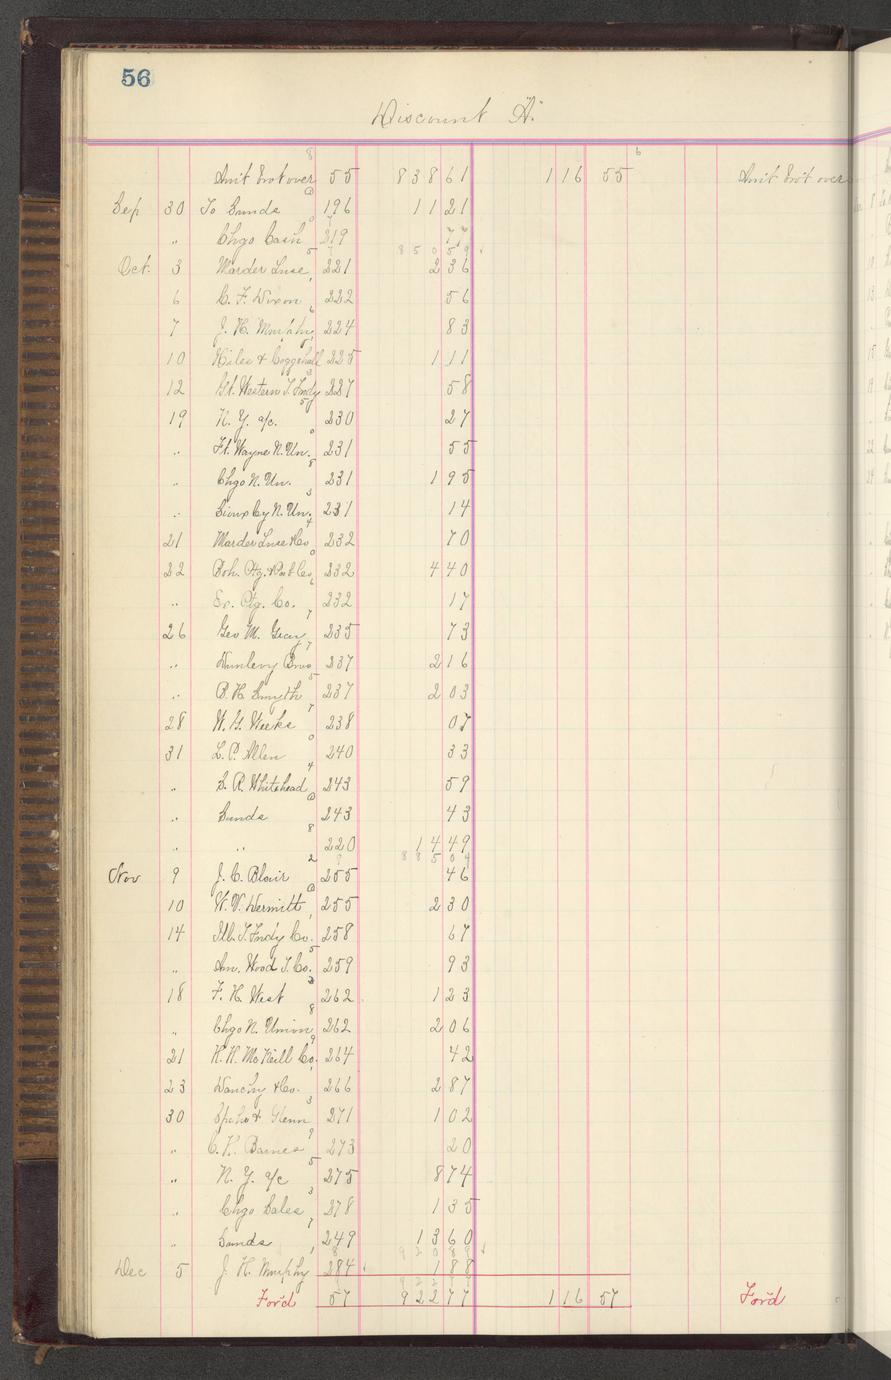 56
Discount A/c
Am't Bro't over 55 838 61 116 55 Am't Bro't over
Sep 30 To Sunds 196 11 21
" Chgo Cash 219 77
850 59
Oct. 3 Marder Luse 221 2 36
6 C. F. Dixon 222 56
7 J. H. Murphy 224 83
10 Hiles & Coggshall 225 1 11
12 Gt. Western T. Fndy 227 58
19 N. Y. a/c. 230 27
" Ft. Wayne N. Un. 231 55
" Chgo N. Un. 231 1 95
" Sioux Cy N. Un. 231 14
21 Marder Luse & Co 232 70
22 Boh. Ptg. & Pub Co 232 4 40
" Ex. Ptg. Co. 232 17
26 Geo M. Gray 235 73
" Dunlevy Bros 237 2 16
" B. H. Smyth 237 2 03
28 W. G. Weeks 238 07
31 L. P. Allen 240 33
" S. R. Whitehead 243 59
" Sunds 243 43
" " 220 14 49
885 04
Nov 9 J. C. Blair 255 46
10 W. V. Dermitt 255 2 30
14 Ill. T. Fndy Co. 258 67
" Am. Wood T. Co. 259 93
18 F. H. West 262 1 23
" Chgo N. Union 262 2 06
21 H. H. McNeill Co. 264 42
23 & Co. 266 2 87
30 & Glenn 271 1 02
" C. H. Barnes 273 20
" N. Y. a/c 275 8 74
" Chgo Sales 278 1 35
" Sunds 249 13 60
920 89
Dec 5 J. H. Murphy 284 1 88
922 77
For'd 57 922 77 116 57 For'd